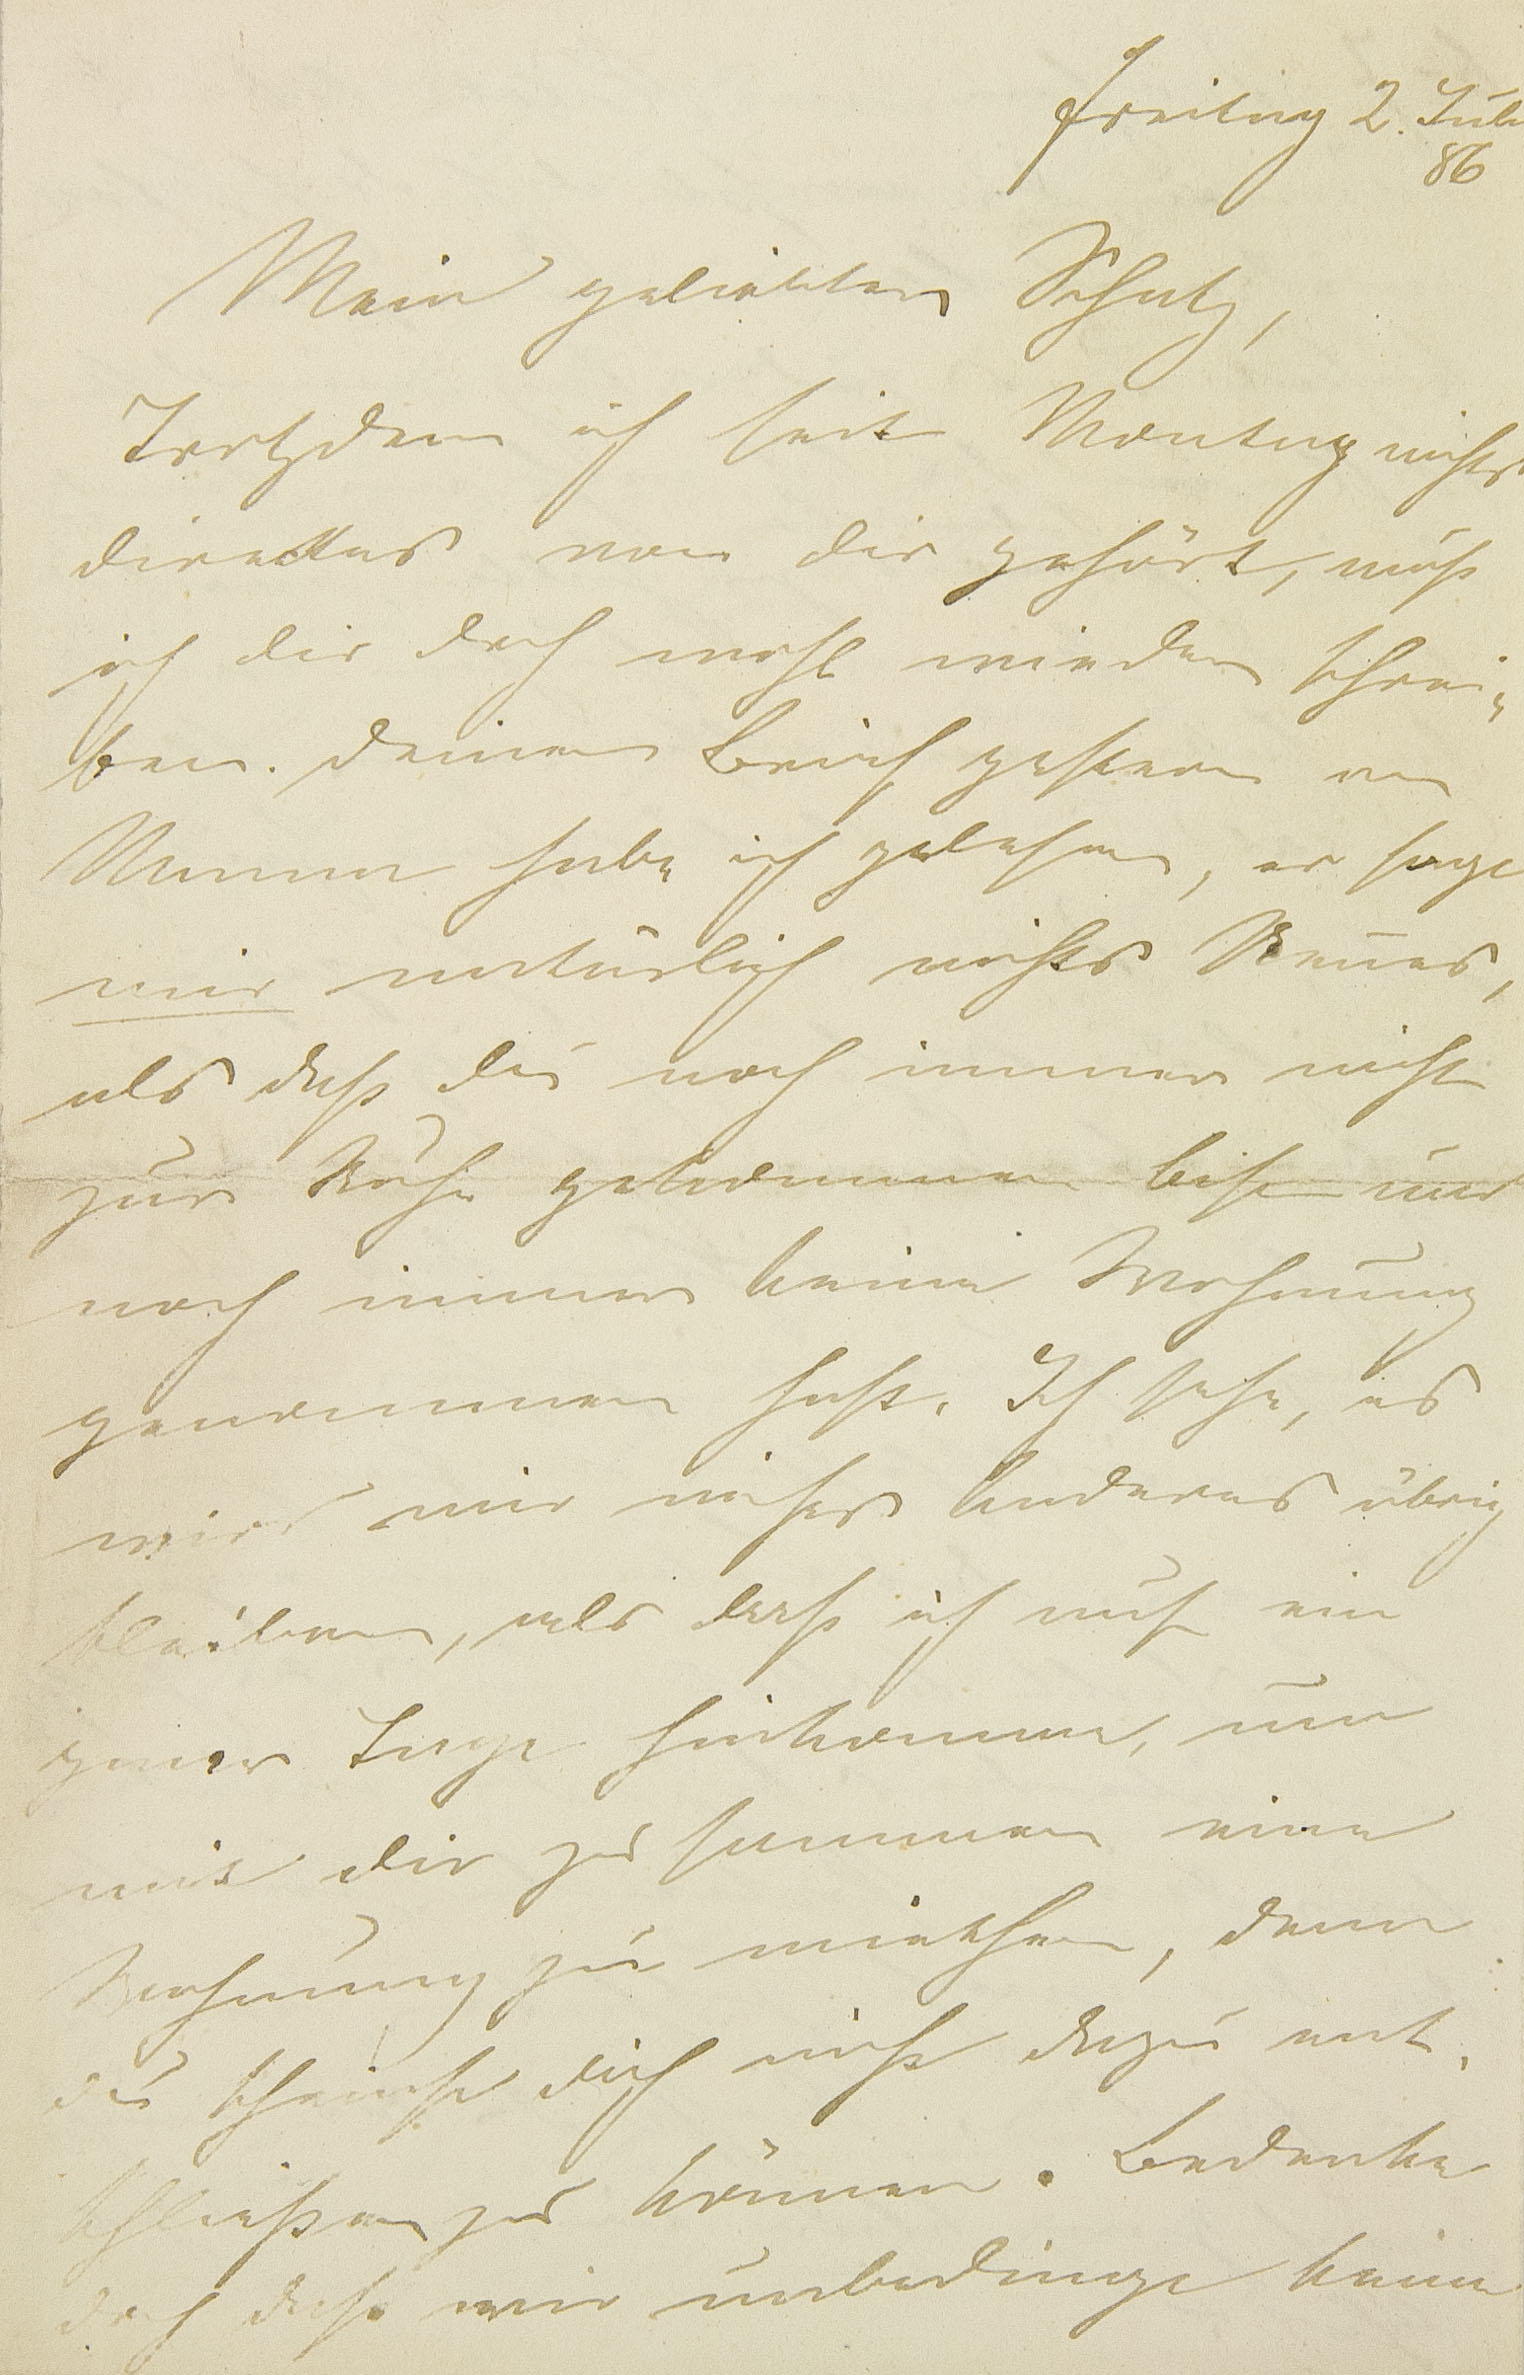 Freitag 2. Juli
86
Mein geliebter Schatz,
Trotzdem ich seit Montag nichts
direktes von dir gehört, muß
ich dir doch wohl wieder schrei-
ben. Deinen Brief gestern an
Mama habe ich gelesen, er sagt
mir natürlich nichts Neues,
als daß du noch immer nicht
zur Ruhe gekommen bist und
noch immer keine Wohnung
genommen hast. Ich sehe, es
wird mir nichts Anderes übrig
bleiben, als daß ich auf ein
paar Tage hinkomme, um
mit dir zusammen eine
Wohnung zu miethen, denn
du scheinst dich nicht dazu ent-
schließen zu können. Bedenke
doch daß wir unbedingt keine